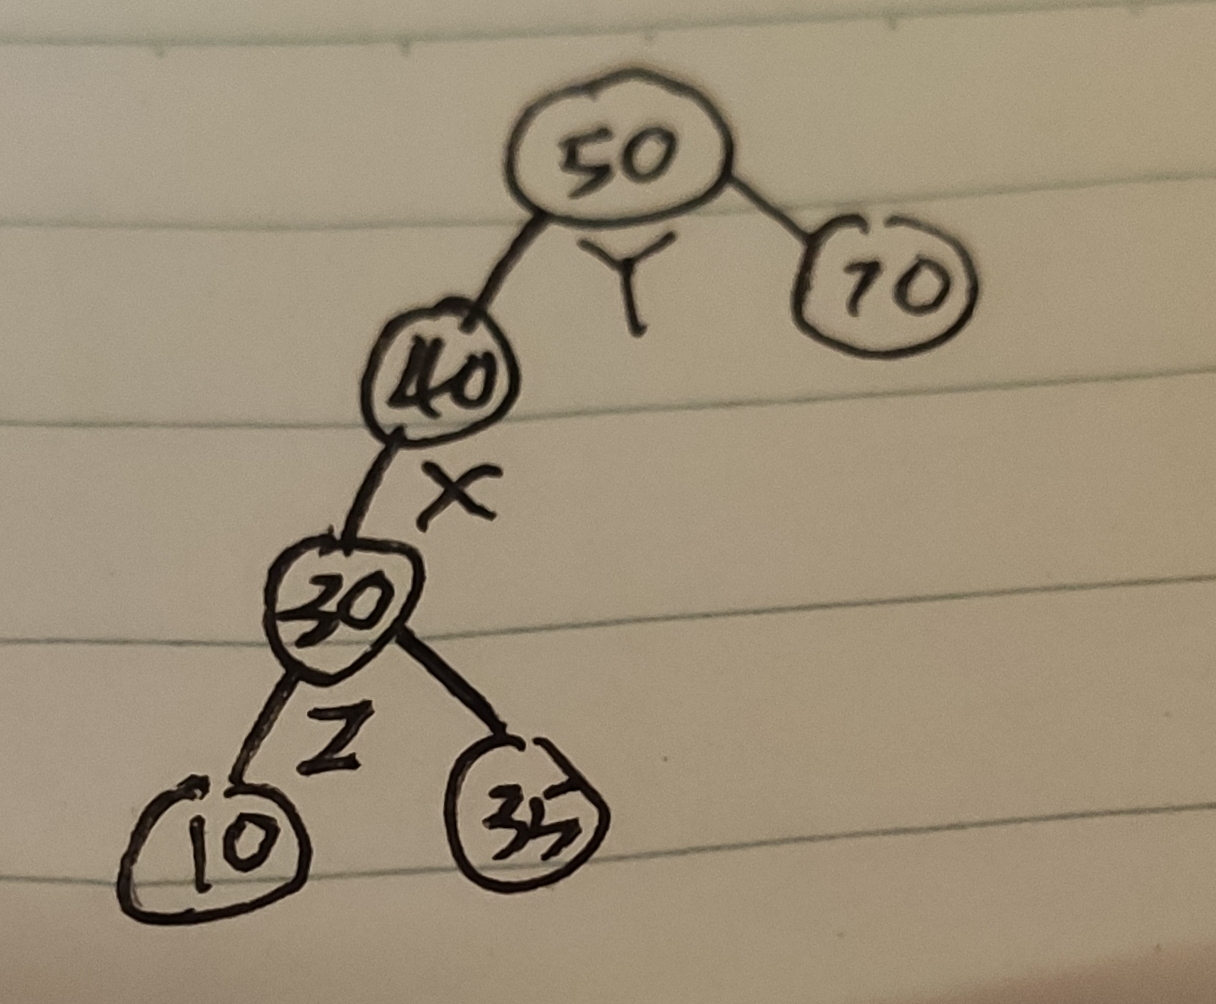 50
Y
70
40
X
30
Z
10
35